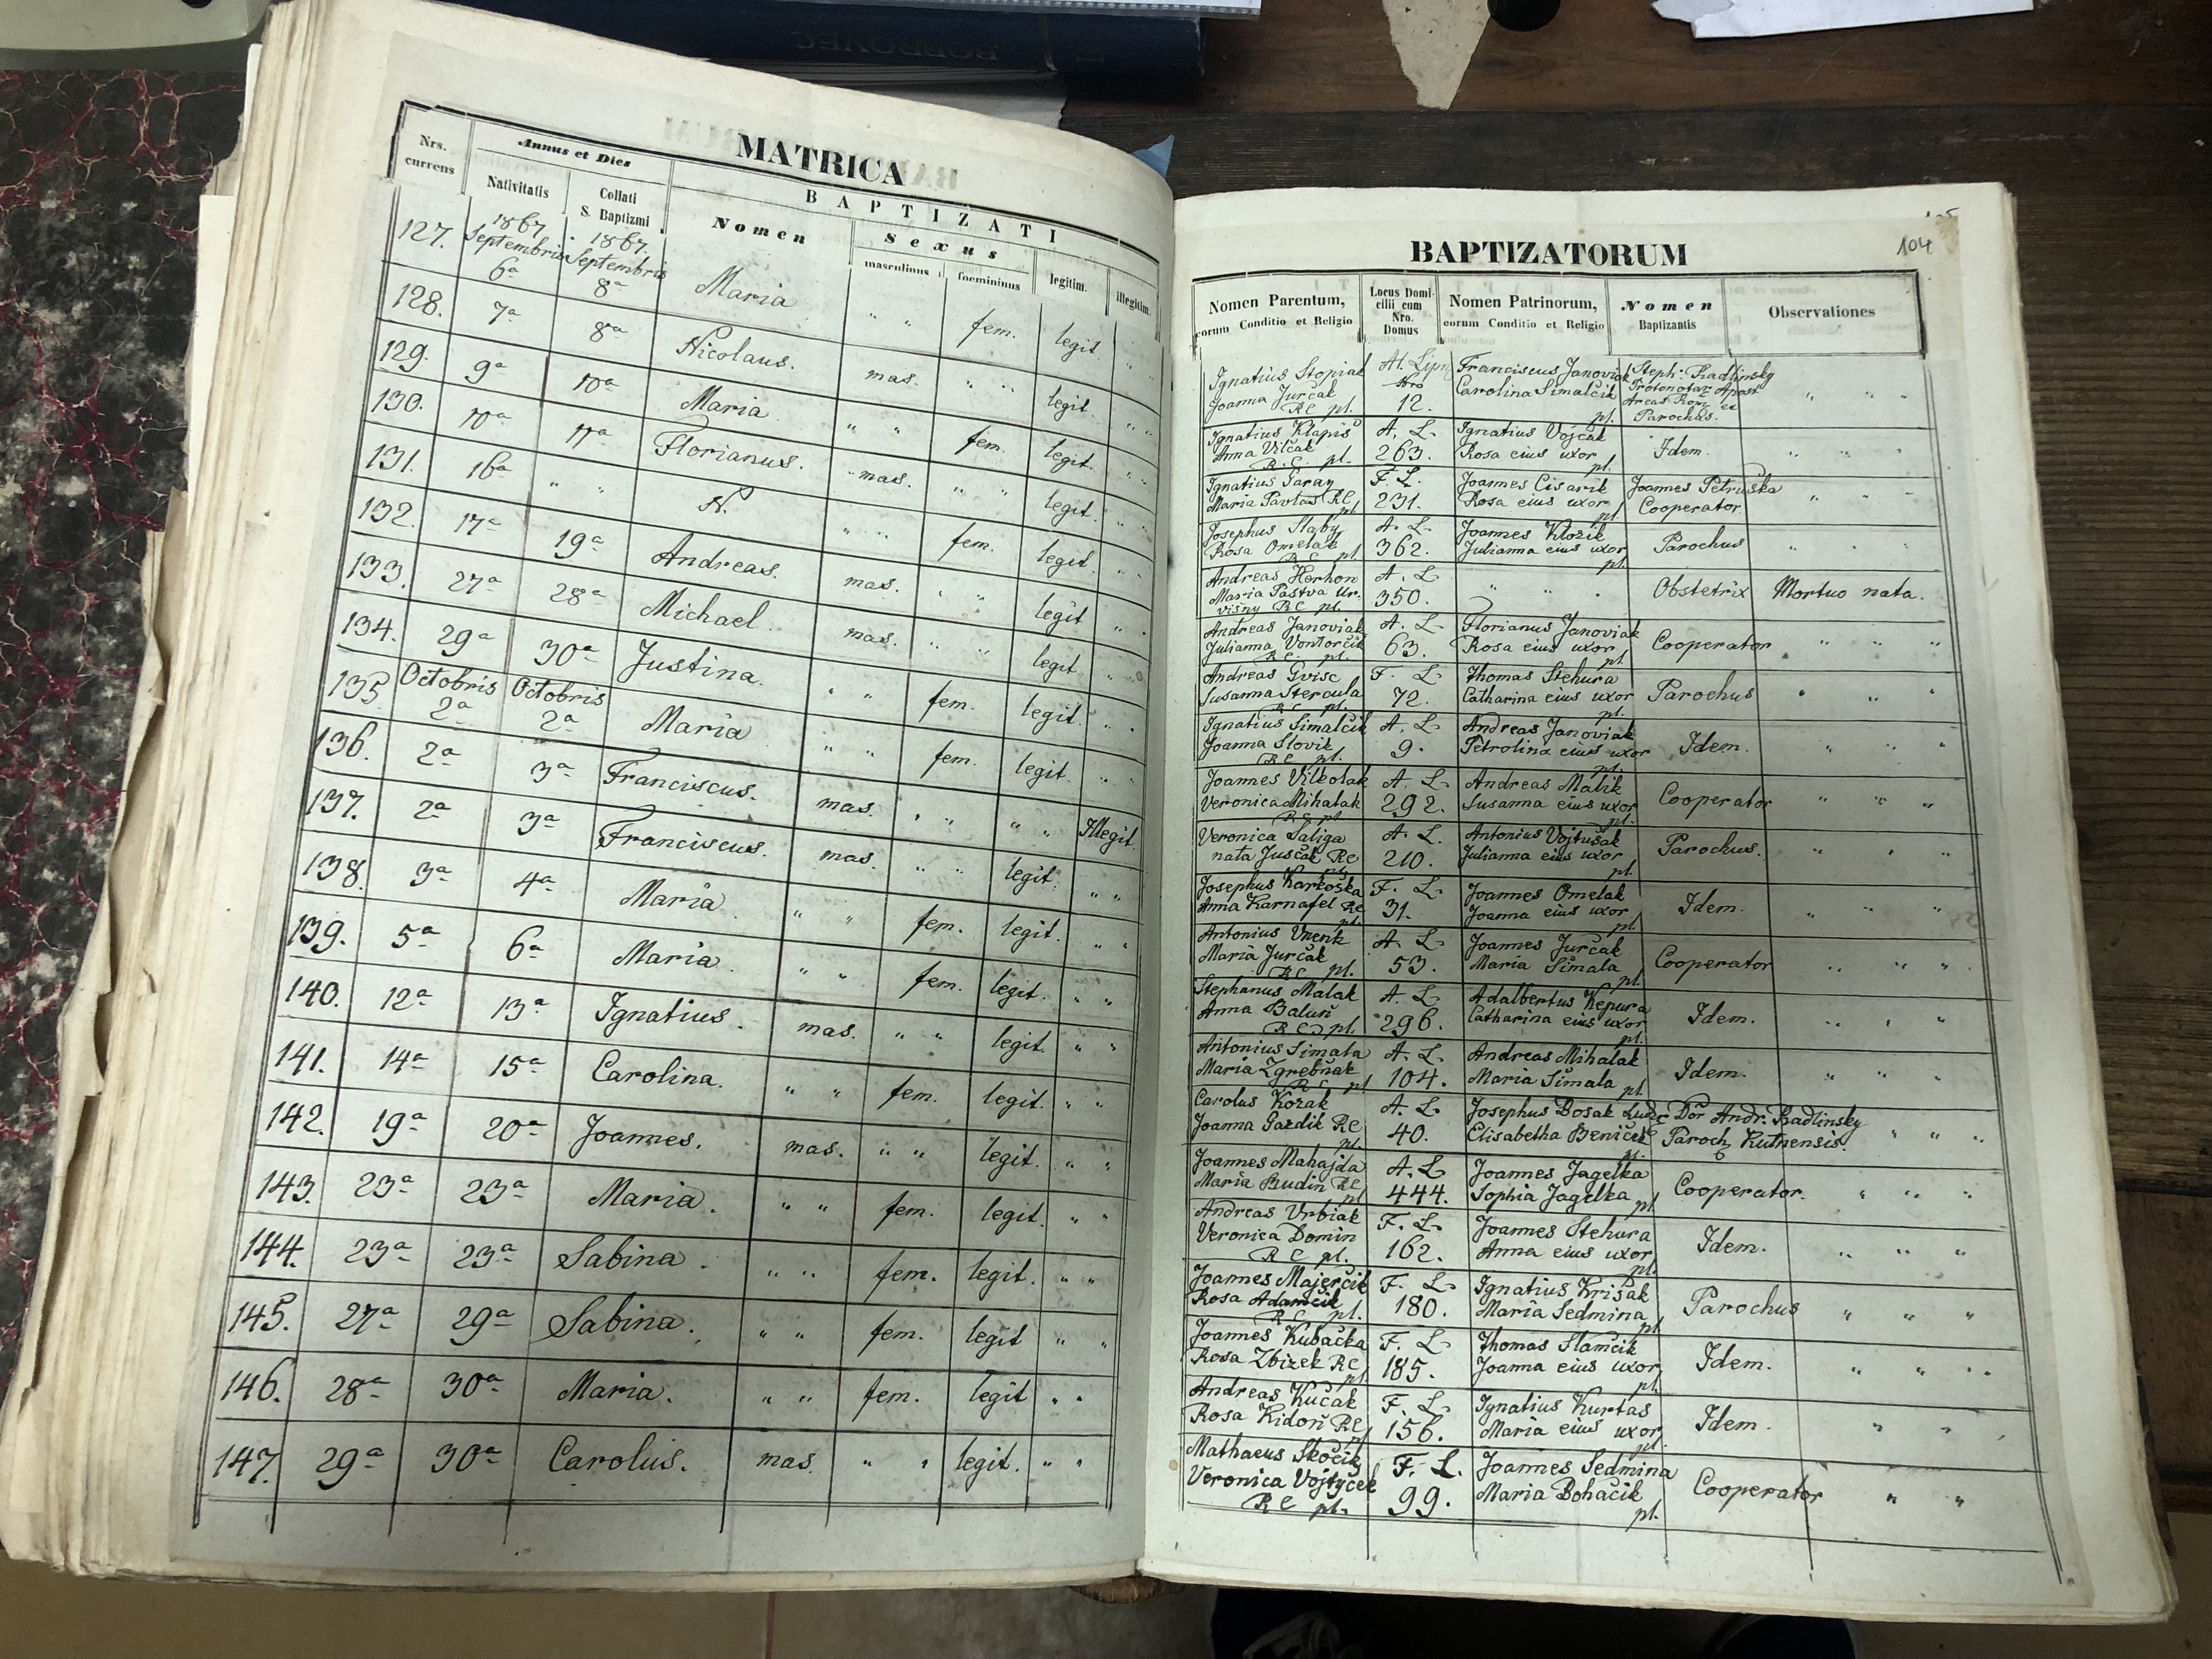 BOBROVEC
MATRICA
Nrs. currens
Annus et Dies
Nativitatis
Collati S. Baptizmi
BAPTIZATI
Nomen
Sexus
masculinus
foemininus
legitim.
illegitim.
127. 1867 Septembris 6a 1867. Septembris 8a Maria " " fem. legit. " "
128. 7a 8a Nicolaus. mas. " " legit. " "
129. 9a 10a Maria " " fem. legit. " "
130. 10a 11a Florianus. mas. " " legit. " "
131. 16a " " N. " " fem. legit. " "
132. 17a 19a Andreas. mas. " " legit " "
133. 27a 28a Michael mas. " " legit " "
134. 29a 30a Justina. " " fem. legit. " "
135. Octobris 2a Octobris 2a Maria " " fem. legit. " "
136. 2a 3a Franciscus. mas. " " " " Illegit.
137. 2a 3a Franciscus. mas. " " legit. " "
138. 3a 4a Maria " " fem. legit. " "
139. 5a 6a Maria. " " fem. legit. " "
140. 12a 13a Ignatius. mas. " " legit. " "
141. 14a 15a Carolina. " " fem. legit. " "
142. 19a 20a Joannes. mas. " " legit. " "
143. 23a 23a Maria. " " fem. legit. " "
144. 23a 23a Sabina. " " fem. legit. " "
145. 27a 29a Sabina. " " fem. legit " "
146. 28a 30a Maria. " " fem. legit " "
147. 29a 30a Carolus. mas. " " legit. " "
104
BAPTIZATORUM
Nomen Parentum,
eorum Conditio et Religio
Locus Domi-
cilii cum
Nro.
Domus
Nomen Patrinorum,
eorum Conditio et Religio
Nomen
Baptizantis
Observationes
Ignatius Stopiak Franciscus Janoviak Steph. Radlinsky
Joanna Jurčak Nro Carolina Simalčik Protonotar Apost
RC pl. 12. pl. Parochus. " " "
Ignatius Klapiš A. L. Ignatius Vojčak
Anna Vlčak 263. Rosa eius uxor Idem. " " "
R. C. pl. pl.
Ignatius Garay F. L. Joannes Cisarik Joannes Petruška
Maria Pavlas RC 231. Rosa eius uxor Cooperator " " "
pl. pl.
Josephus Slaby A. L. Joannes Klozik
Rosa Omelak 362. Julianna eius uxor Parochus " " "
RC pl. pl.
Andreas Herhon A. L.
Maria Pastva Ur- 350. " " " Obstetrix Mortuo nata.
višny RC pl.
Andreas Janoviak A. L. Florianus Janoviak
Julianna Vontorčik 63. Rosa eius uxor Cooperator " " "
RC. pl. pl.
Andreas Gvisc F. L. Thomas Stehura
Susanna Stercula 72. Catharina eius uxor Parochus " " "
RC pl. pl.
Ignatius Simalčik A. L. Andreas Janoviak
Joanna Slovik 9. Petrolina eius uxor Idem. " " "
RC pl. pl.
Joannes Vilkolak A. L. Andreas Malik
Veronica Mihalak 292. Susanna eius uxor Cooperator " " "
RC pl. pl.
Veronica Saliga A. L. Antonius Vojtušak
nata Juščak RC 210. Julianna eius uxor Parochus. " " "
pl. pl.
Josephus Karkoška F. L. Joannes Omelak
Anna Karnafel RC 31. Joanna eius uxor Idem. " " "
pl. pl.
Antonius Vnenk A. L. Joannes Jurčak
Maria Jurčak 53. Maria Simala Cooperator " " "
RC pl. pl.
Stephanus Malak A. L. Adalbertus Kepura
Anna Baluň 296. Catharina eius uxor Idem. " " "
RC pl. pl.
Antonius Simala A. L. Andreas Mihalak
Maria Zgrebňak 104. Maria Simala Idem. " " "
RC pl. pl.
Carolus Kozak A. L. Josephus Bosak Dor Andr. Radlinsky
Joanna Gazdik RC 40. Elisabetha Beniček Paroch Kutnensis. " " "
pl. pl.
Joannes Mahajda A. L Joannes Jagelka
Maria Budin RC 444. Sophia Jagelka Cooperator. " " "
pl. pl.
Andreas Vrbiak F. L. Joannes Stehura
Veronica Domin 162. Anna eius uxor Idem. " " "
RC pl. pl.
Joannes Majerčik F. L. Ignatius Krišak
Rosa Adamčik 180. Maria Sedmina Parochus " " "
RC pl. pl.
Joannes Kubačka F. L Thomas Slamčik
Rosa Zbizek RC 185. Joanna eius uxor Idem. " " "
pl. pl.
Andreas Kučak F. L. Ignatius Kurtas
Rosa Kidoň RC 156. Maria eius uxor Idem. " " "
pl. pl.
Mathaeus Skočik F. L. Joannes Sedmina
Veronica Vojtyček 99. Maria Bohačik Cooperator " "
RC pl. pl.